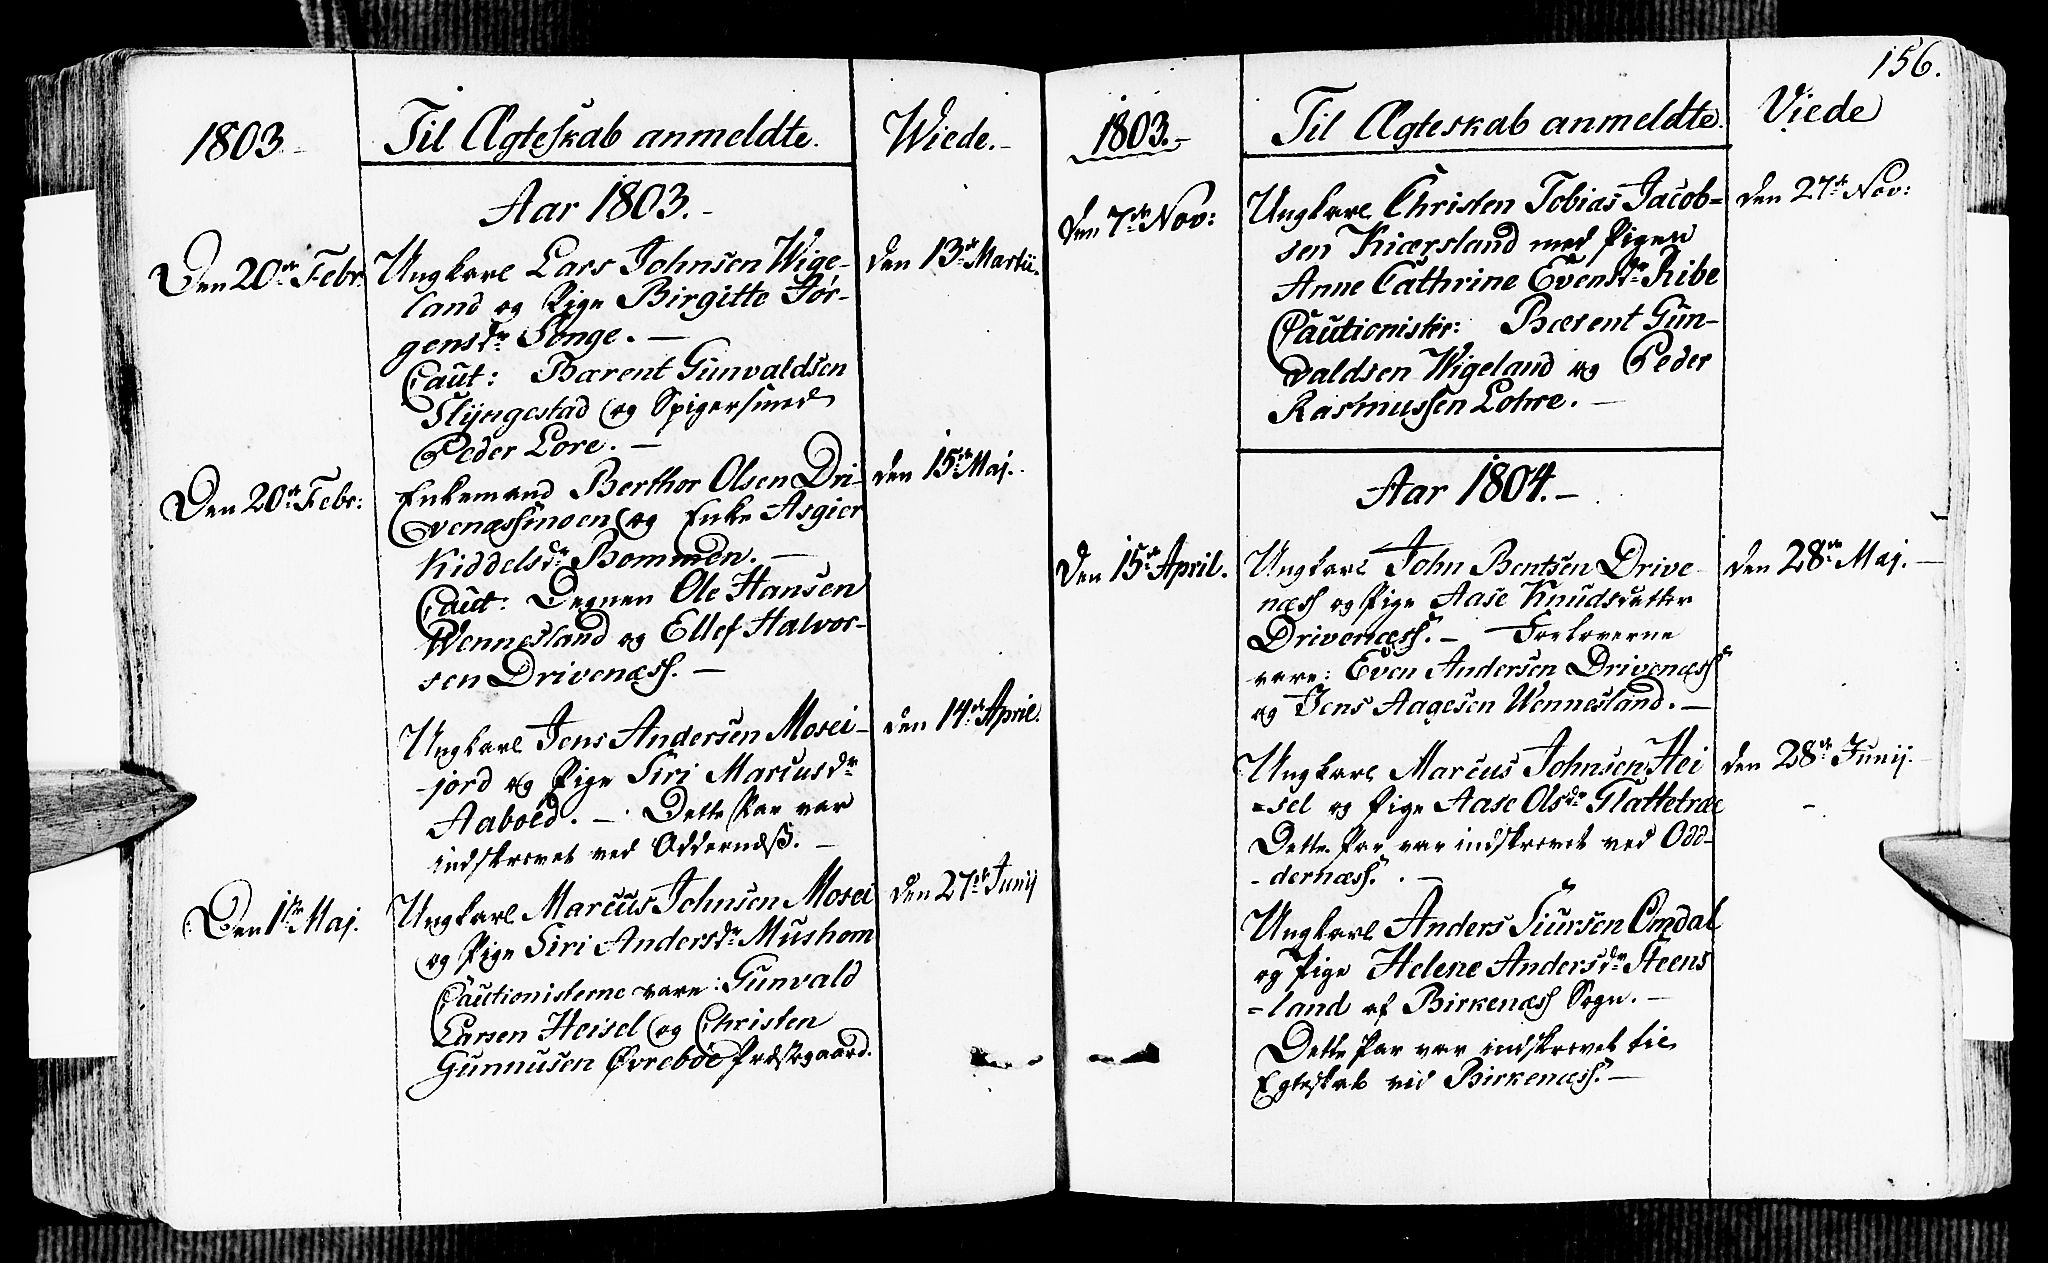 1803
Til Ægteskab anmeldte.
Wiede.
Aar 1803.
Den 20de Febr.
Ungkarl Lars Johnsen Wige-
land og Pige Birgitte Jør-
gensdr Songe.
Caut: Bærent Gunvaldsen
Slyngestad og Spigersmed
Peder Lore.
Den 13de Martii.
Den 20de Febr:
Enkemand Berthor Olsen Dri-
venæssmoen og Enke Asgier
Kiddelsdr Bommen.
Caut: Degnen Ole Hansen
Wennesland og Ellef Halvor-
sen Drivenæss.
den 15de Maj.
Ungkarl Jens Andersen Mosei-
jord og Pige Siri Marcusdr
Aaboed. Dette Par var
indskrevet ved Oddernæss.
den 14de April.
Den 1ste Maj.
Ungkarl Marcus Johnsen Mosei
og Pige Siri Andersdr Mushom
Cautionisterne vare: Gunvald
Larsen Heisel og Christen
Gunnusen Øvrebøe Præstegaard.
den 27de Junij
156.
1803.
Til Ægteskab anmeldte.
Viede
den 7de Nov:
Ungkarl Christen Tobias Jacob=
sen Kiærsland med Pigen
Anne Cathrine Evensdr Ribe
Cautionister: Bærent Gun-
valdsen Wigeland og Peder
Rasmussen Lohre.
den 27de Nov:
Aar 1804.
Den 15de April.
Ungkarl John Bentsen Drive
næss og Pige Aase Knudsdatter
Drivenæss. Forloverne
vare: Even Andersen Drivenæss
og Jens Aagesen Wennesland.
den 28de Maj.
Ungkarl Marcus Johnsen Hei
=sel og Pige Aase Olsdr Flattetræe
Dette Par var indskrevet ved Odd-
-dernæss.
den 28de Junij.
Ungkarl Anders Siursen Omdal
og Pige Helene Andersdr Steens
=land af Birkenæss Sogn.
Dette Par var indskrevet til
Egteskab vid Birkenæss.